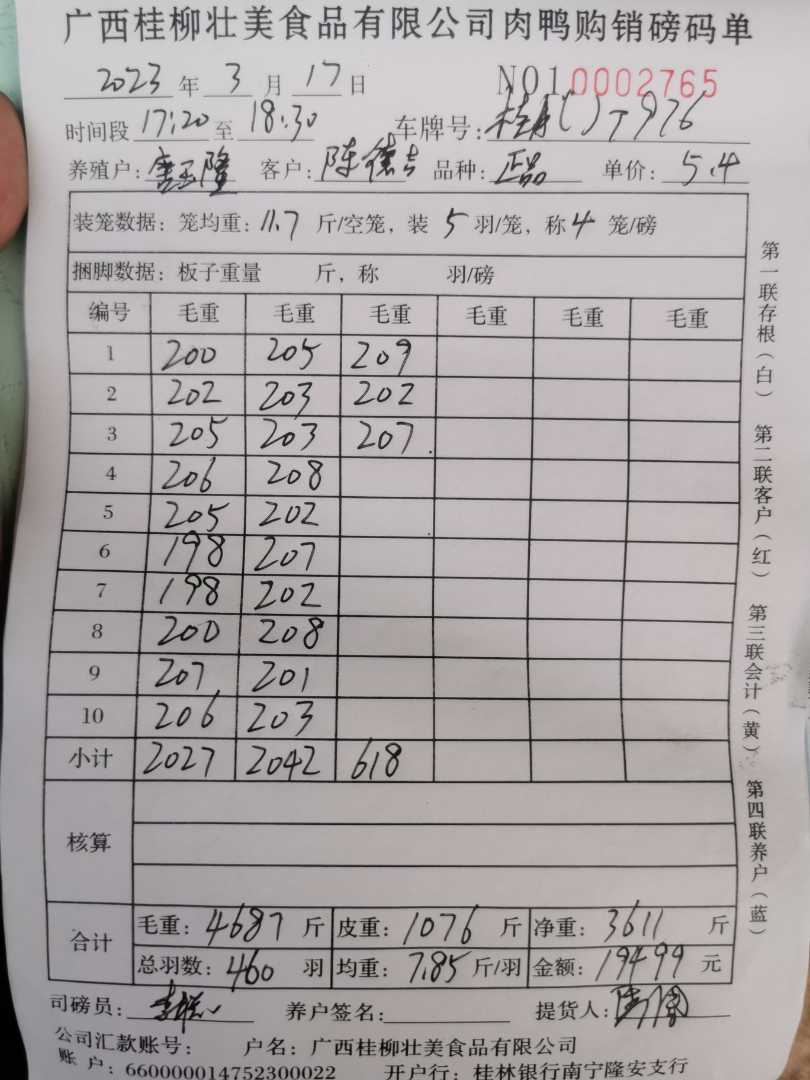 广西桂柳壮美食品有限公司肉鸭购销磅码单
2023 年 3 月 17 日 NO10002765
时间段 17:20 至 18:30 车牌号: 桂 976
养殖户: 唐玉隆 客户: 陈德吉 品种: 正品 单价: 5.4
装笼数据: 笼均重: 11.7 斤/空笼, 装 5 羽/笼, 称 4 笼/磅
捆脚数据: 板子重量 斤, 称 羽/磅
编号 毛重 毛重 毛重 毛重 毛重 毛重
1 200 205 209
2 202 203 202
3 205 203 207
4 206 208
5 205 202
6 198 207
7 198 202
8 200 208
9 207 201
10 206 203
小计 2027 2042 618
核算
合计
毛重: 4687 斤 皮重: 1076 斤 净重: 3611 斤
总羽数: 460 羽 均重: 7.85 斤/羽 金额: 19499 元
司磅员: 养户签名: 提货人:
公司汇款账号: 户名: 广西桂柳壮美食品有限公司
账户: 660000014752300022 开户行: 桂林银行南宁隆安支行
第一联存根(白) 第二联客户(红) 第三联会计(黄) 第四联养户(蓝)